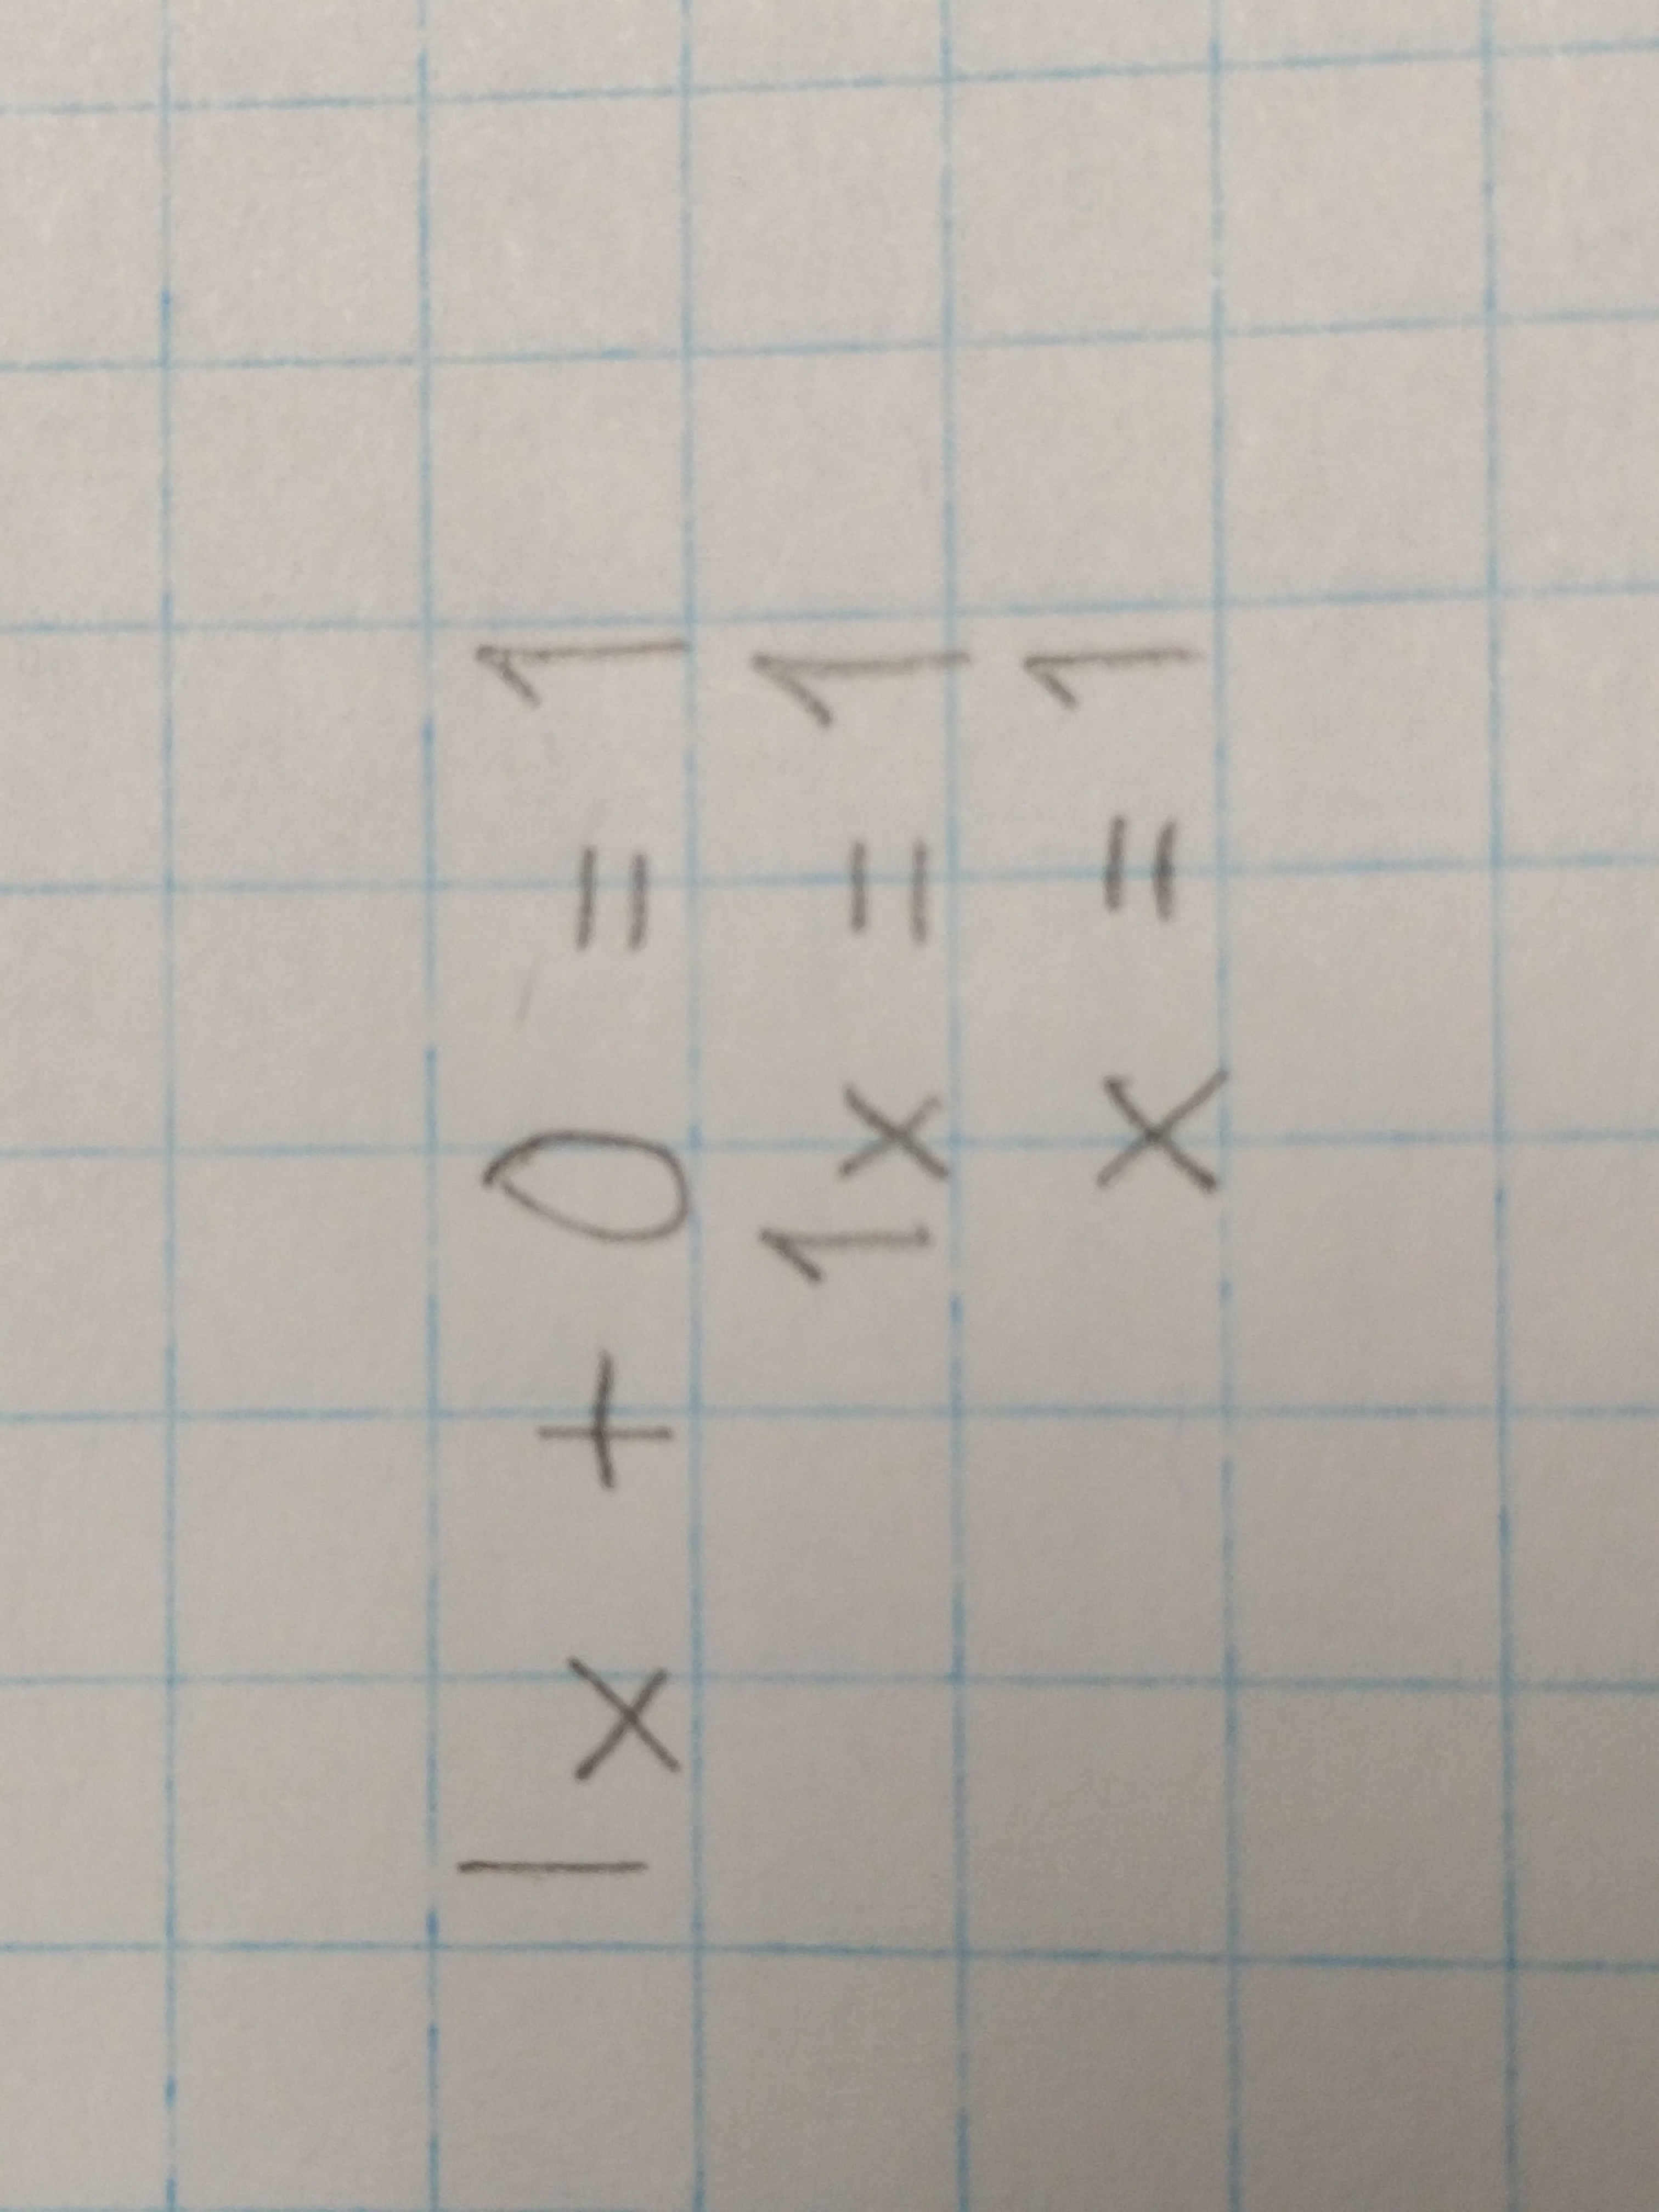 1x + 0 = 1
1x = 1
x = 1